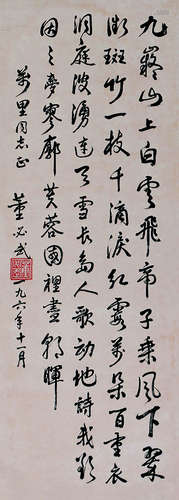 九嶷山上白雲飛帝子乘風下翠
微斑竹一枝千滴淚紅霞萬朵百重衣
洞庭波湧連天雪長島人歌動地詩我欲
因之夢寥廓芙蓉國裡盡朝暉
萬里同志正
董必武
一九六年十一月